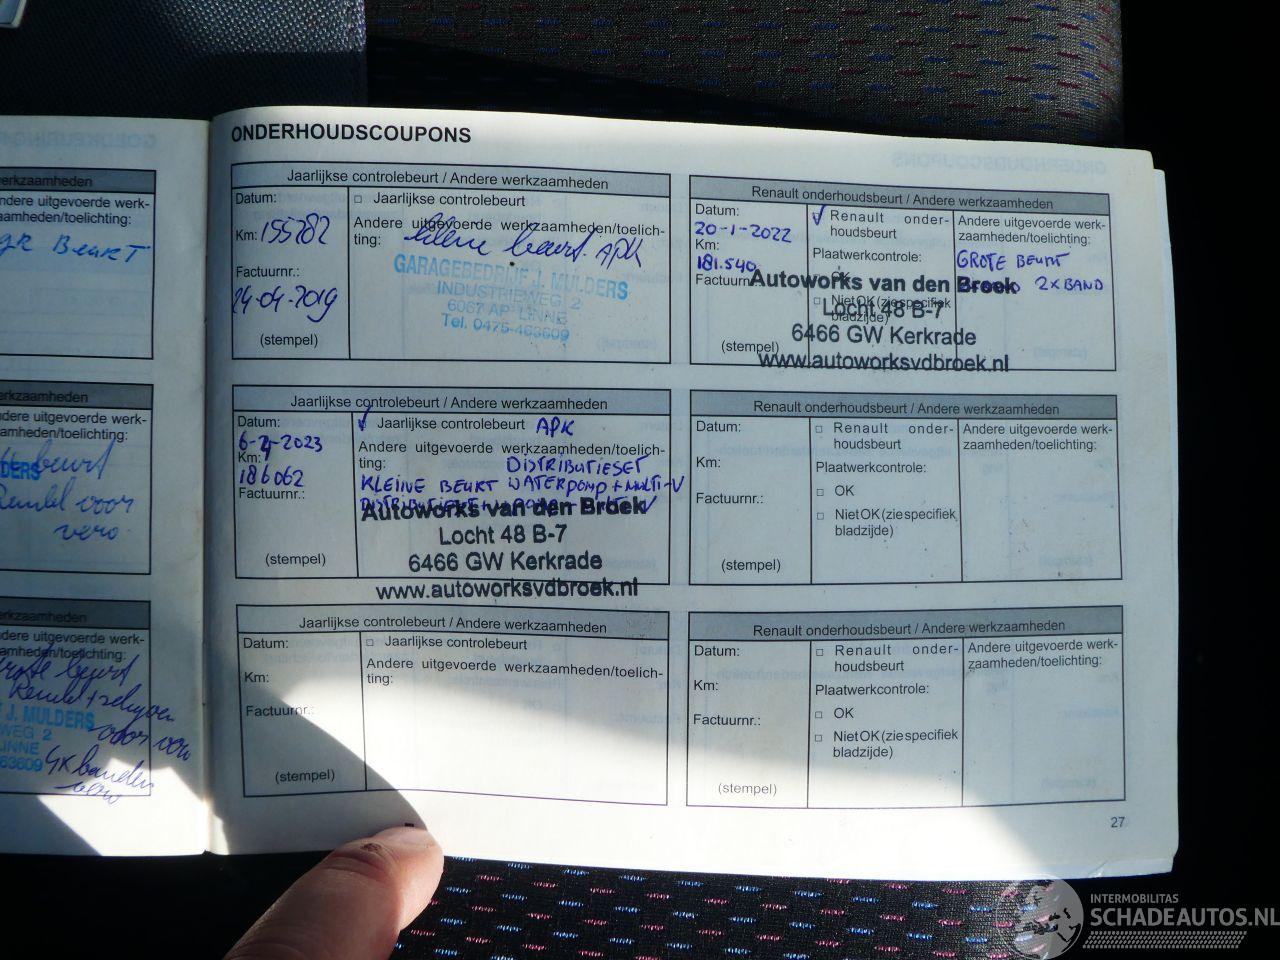 erkzaamheden
ndere uitgevoerde werk-
aamheden/toelichting:
BEURT
erkzaamheden
dere uitgevoerde werk-
amheden/toelichting:
beurt
DERS
voor
vero
kzaamheden
dere uitgevoerde werk-
mheden/toelichting:
Grote beurt
J. MULDERS
WEG 2
voor vero
LINNE
63609 4x banden
ONDERHOUDSCOUPONS
Jaarlijkse controlebeurt / Andere werkzaamheden
Datum:
□ Jaarlijkse controlebeurt
Km: 155282
Andere uitgevoerde werkzaamheden/toelich-
ting: kleine beurt. APK
GARAGEBEDRIJF J. MULDERS
INDUSTRIEWEG 2
6067 AP LINNE
Tel. 0475-463609
Factuurnr.:
24-04-2019
(stempel)
Renault onderhoudsbeurt / Andere werkzaamheden
Datum:
20-1-2022
Km:
181.540
Factuurnr.:
(stempel)
Renault onder-
houdsbeurt
Plaatwerkcontrole:
□ OK
□ Niet OK (zie specifiek
bladzijde)
Andere uitgevoerde werk-
zaamheden/toelichting:
GROTE BEURT
2x BAND
Autoworks van den Broek
Locht 48 B-7
6466 GW Kerkrade
www.autoworksvdbroek.nl
Jaarlijkse controlebeurt / Andere werkzaamheden
Datum:
6-2-2023
Km:
186062
Factuurnr.:
(stempel)
Jaarlijkse controlebeurt APK
Andere uitgevoerde werkzaamheden/toelich-
ting: DISTRIBUTIESET
KLEINE BEURT WATERPOMP + MULTI-V
Autoworks van den Broek
Locht 48 B-7
6466 GW Kerkrade
www.autoworksvdbroek.nl
Renault onderhoudsbeurt / Andere werkzaamheden
Datum:
Km:
Factuurnr.:
(stempel)
□ Renault onder-
houdsbeurt
Plaatwerkcontrole:
□ OK
□ Niet OK (zie specifiek
bladzijde)
Andere uitgevoerde werk-
zaamheden/toelichting:
Jaarlijkse controlebeurt / Andere werkzaamheden
Datum:
Km:
Factuurnr.:
(stempel)
□ Jaarlijkse controlebeurt
Andere uitgevoerde werkzaamheden/toelich-
ting:
Renault onderhoudsbeurt / Andere werkzaamheden
Datum:
Km:
Factuurnr.:
(stempel)
□ Renault onder-
houdsbeurt
Plaatwerkcontrole:
□ OK
□ Niet OK (zie specifiek
bladzijde)
Andere uitgevoerde werk-
zaamheden/toelichting:
27
INTERMOBILITAS
SCHADEAUTOS.NL